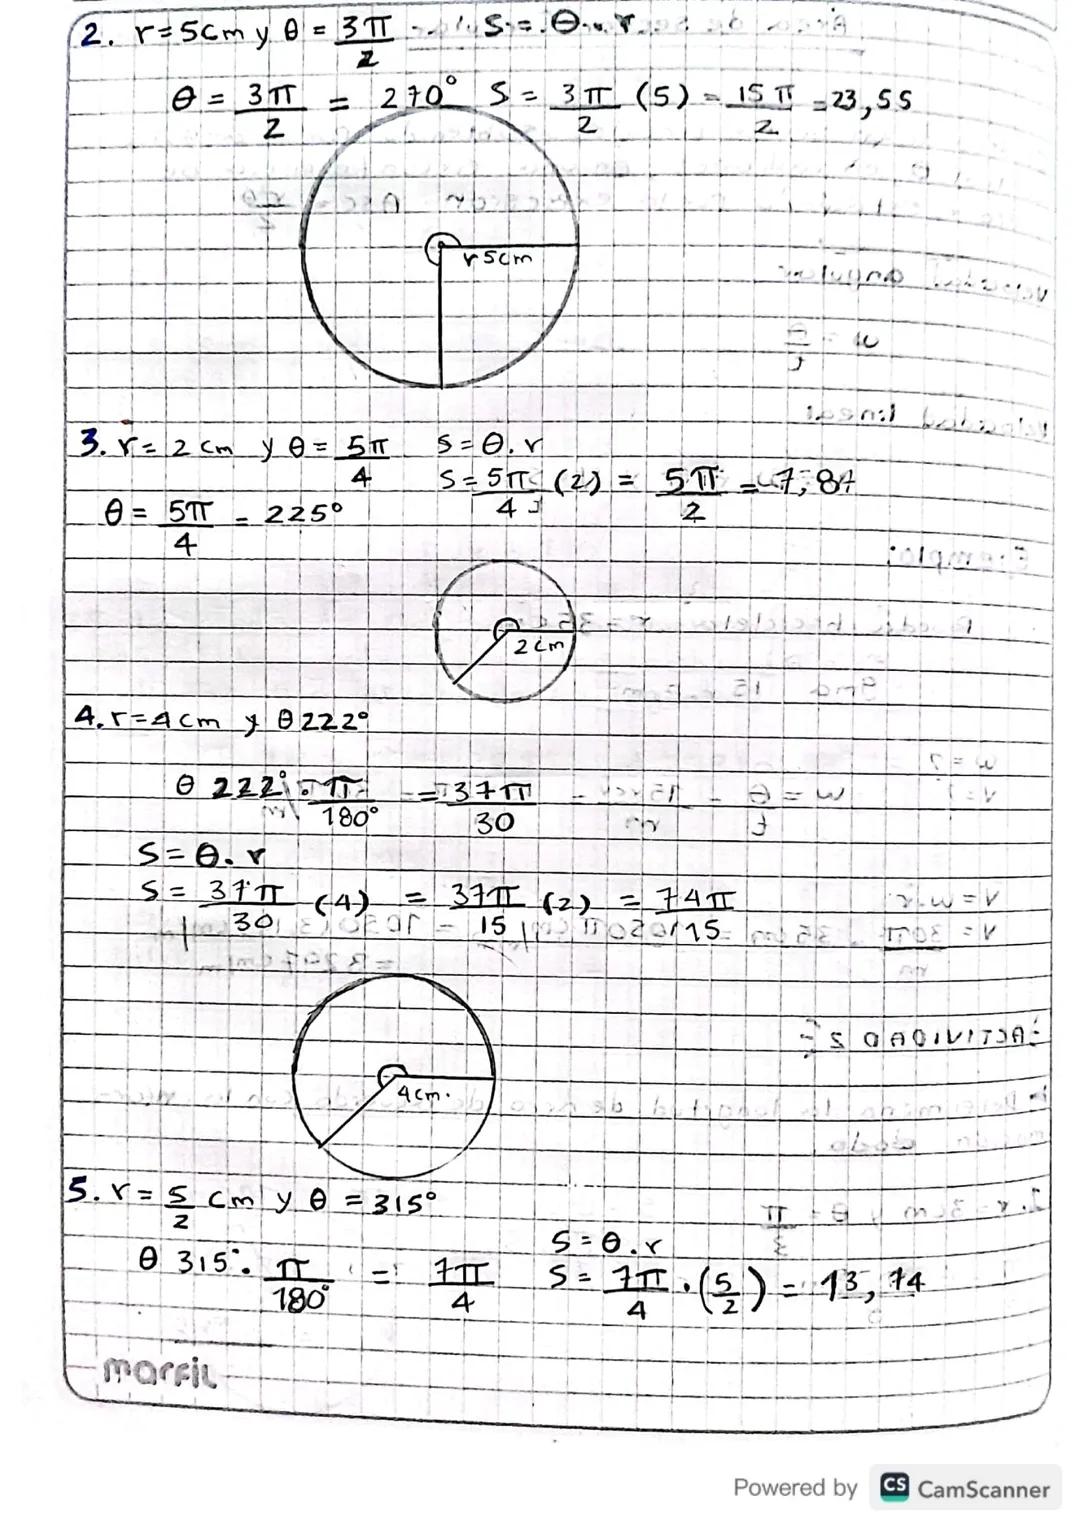 2. r=5cm y θ = 3π/2 S = θ . r
θ = 3π/2 = 270° S = 3π/2 (5) = 15π/2 = 23,55
r 5cm
3. r= 2 cm y θ = 5π/4 S = θ. r
S = 5π/4 (2) = 5π/2 = 7,87
θ = 5π/4 = 225°
2 cm
4. r=4cm y θ 222°
θ 222° . π/180° = 37π/30
S = θ. r
S = 37π/30 (4) = 37π/15 (2) = 74π/15
4cm.
5. r = 5/2 cm y θ = 315°
S = θ . r
θ 315° . π/180° = 7π/4 S = 7π/4 . (5/2) = 13,74
marfil
Powered by CS CamScanner